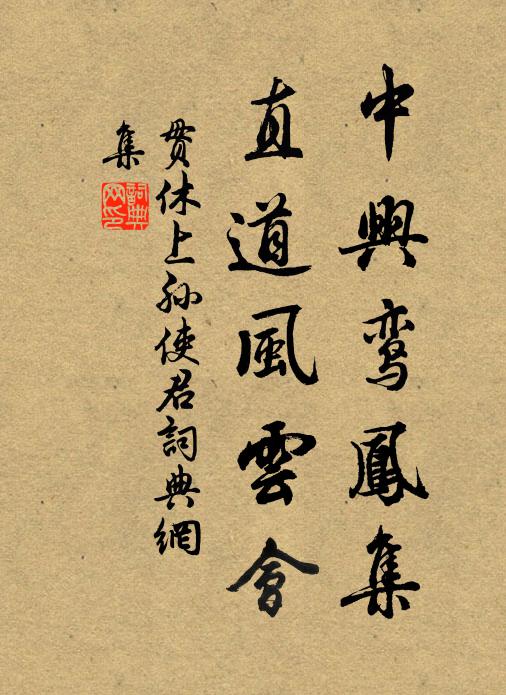 中興鸾鳳集
直道風雲會
贯休上孙使君詞典網
集
詞典
网印